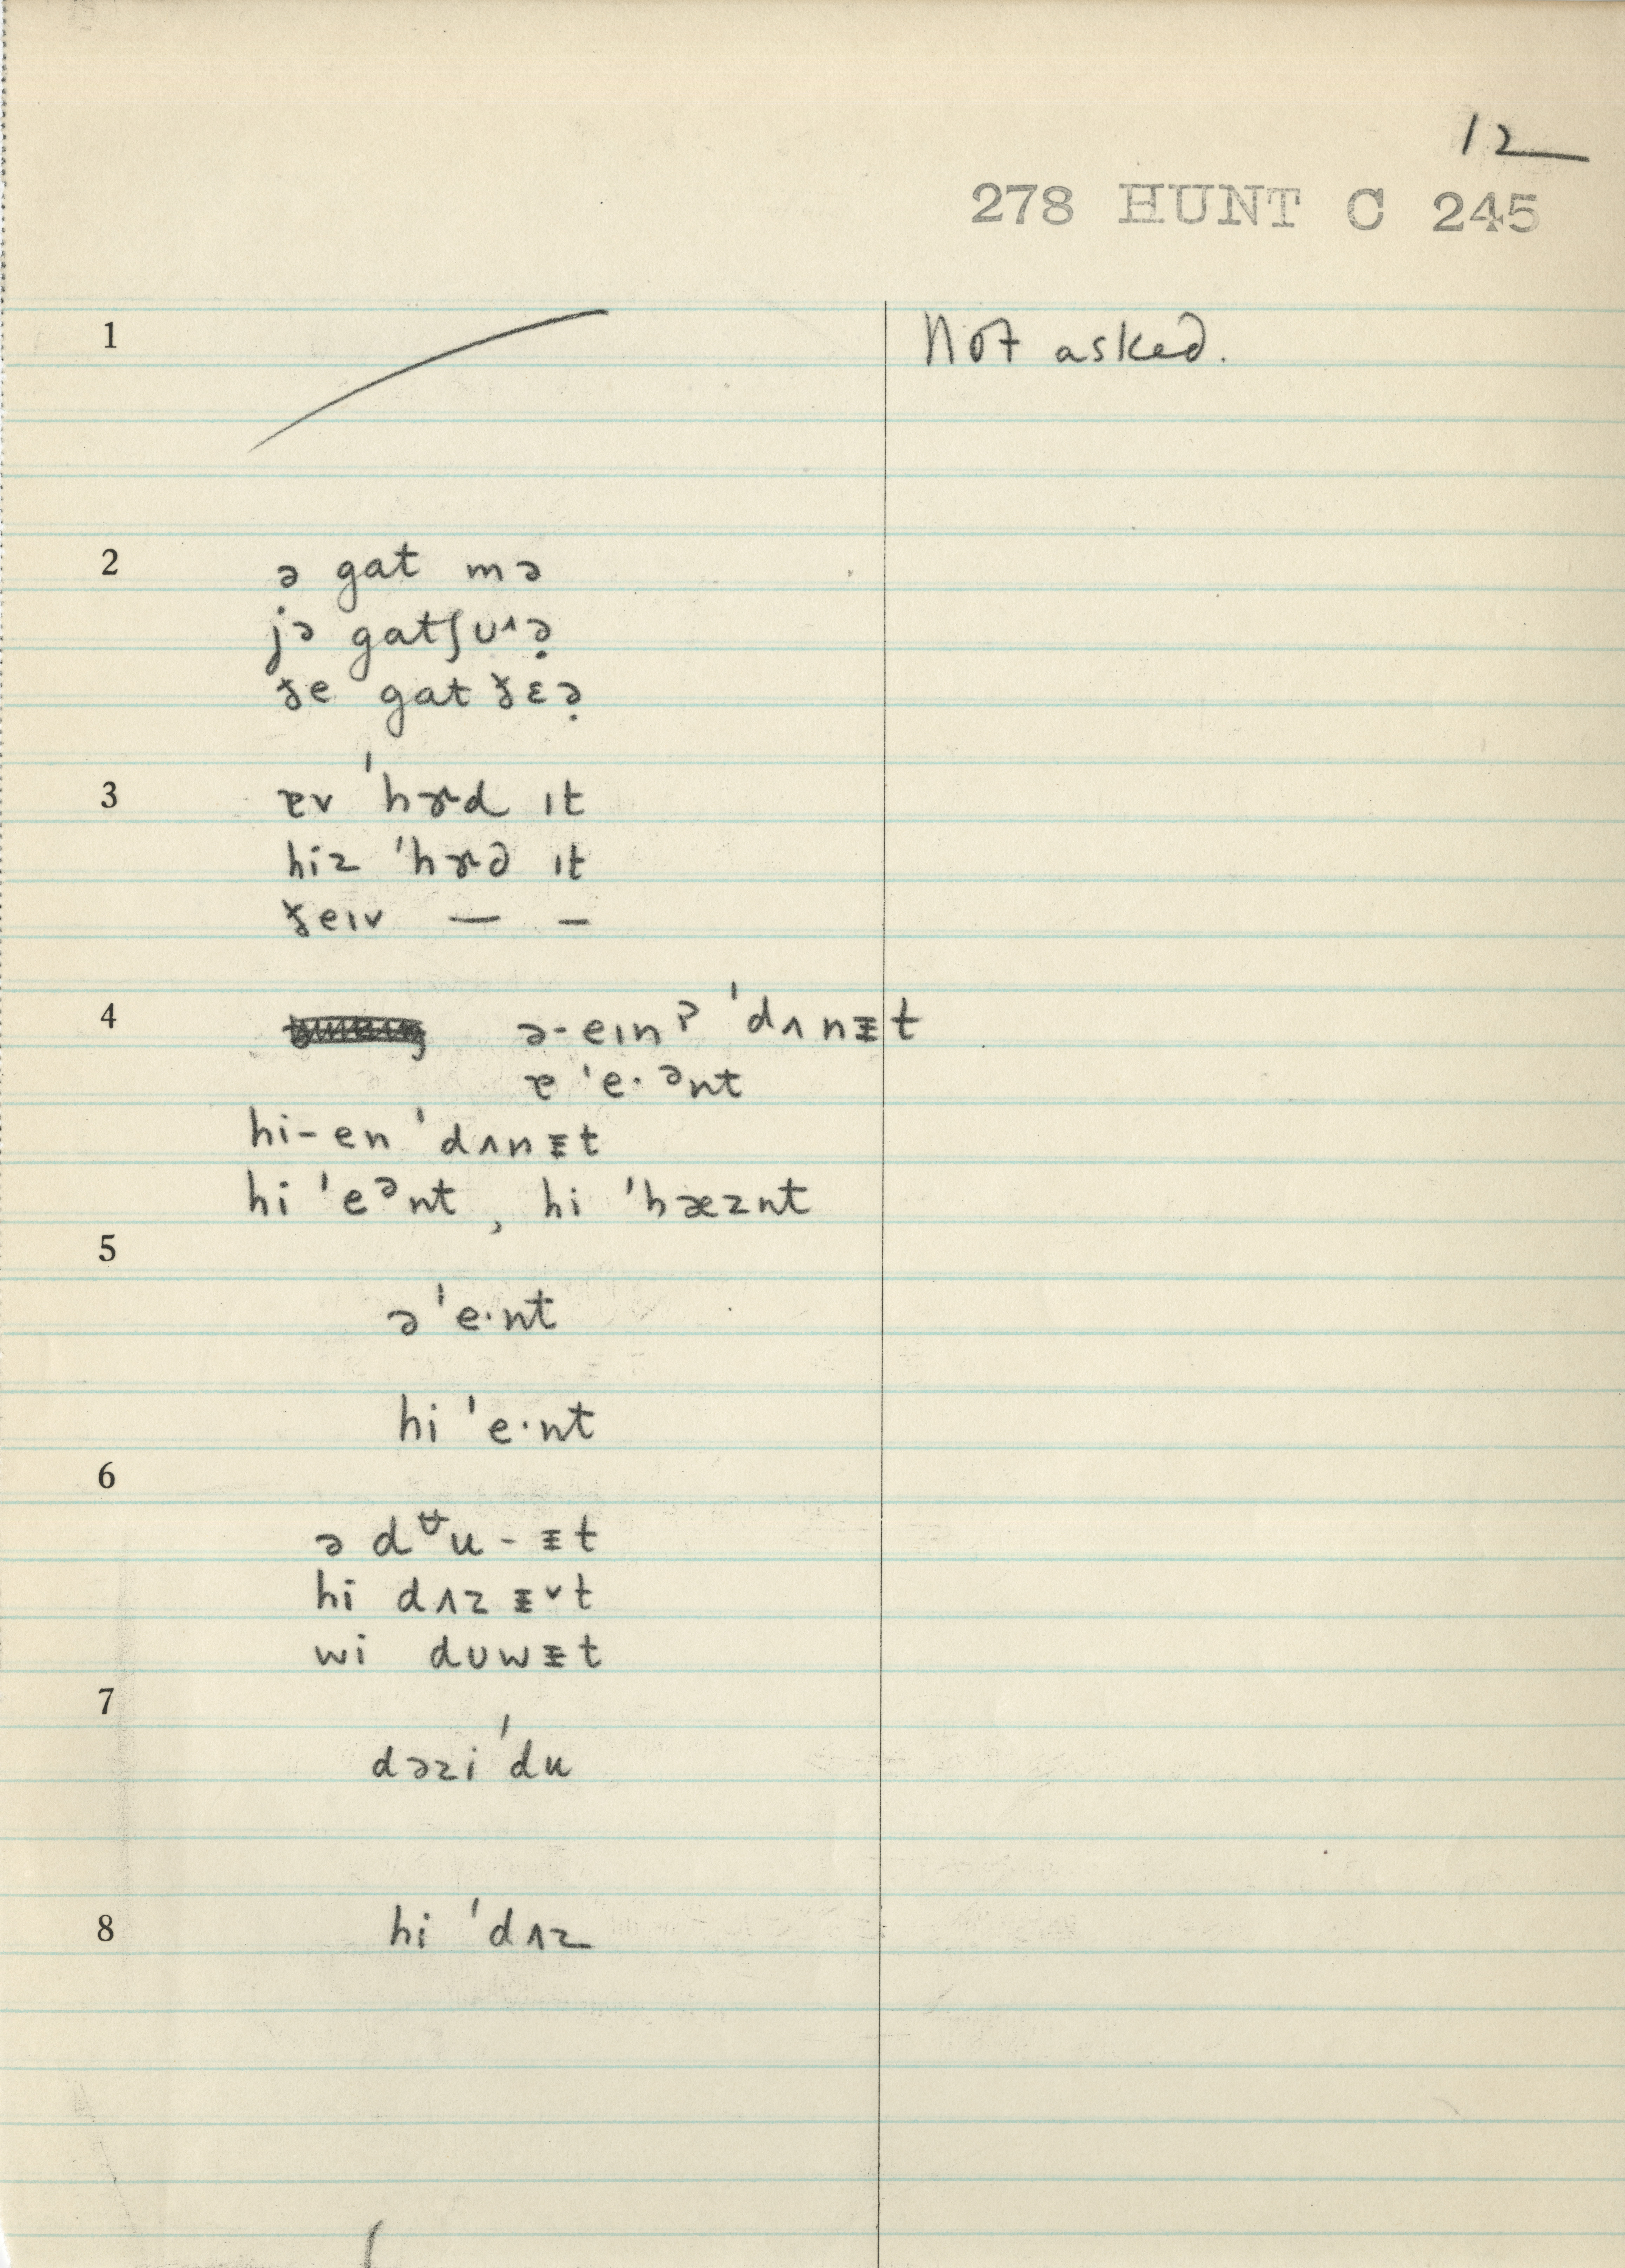 12
278 HUNT C 245
1 Not asked.
2 ə gat mə
jə gatʃʊ˄ə̣
ɟe gat ɟɛə̣
3 ɐv ˈhɝd ɪt
hiz ˈhɝd ɪt
ɟeɪv — –
4 ə-eɪnʔ ˈdʌnᵻt
ɐ ˈe·ᵊnt
hi-en ˈdʌnᵻt
hi ˈeᵊnt, hi ˈhæznt
5
ə ˈe·nt
hi ˈe·nt
6
ə dᶶu-ᵻt
hi dʌz ᵻ˅t
wi dʊwᵻt
7
dəzi ˈdu
8 hi ˈdʌz